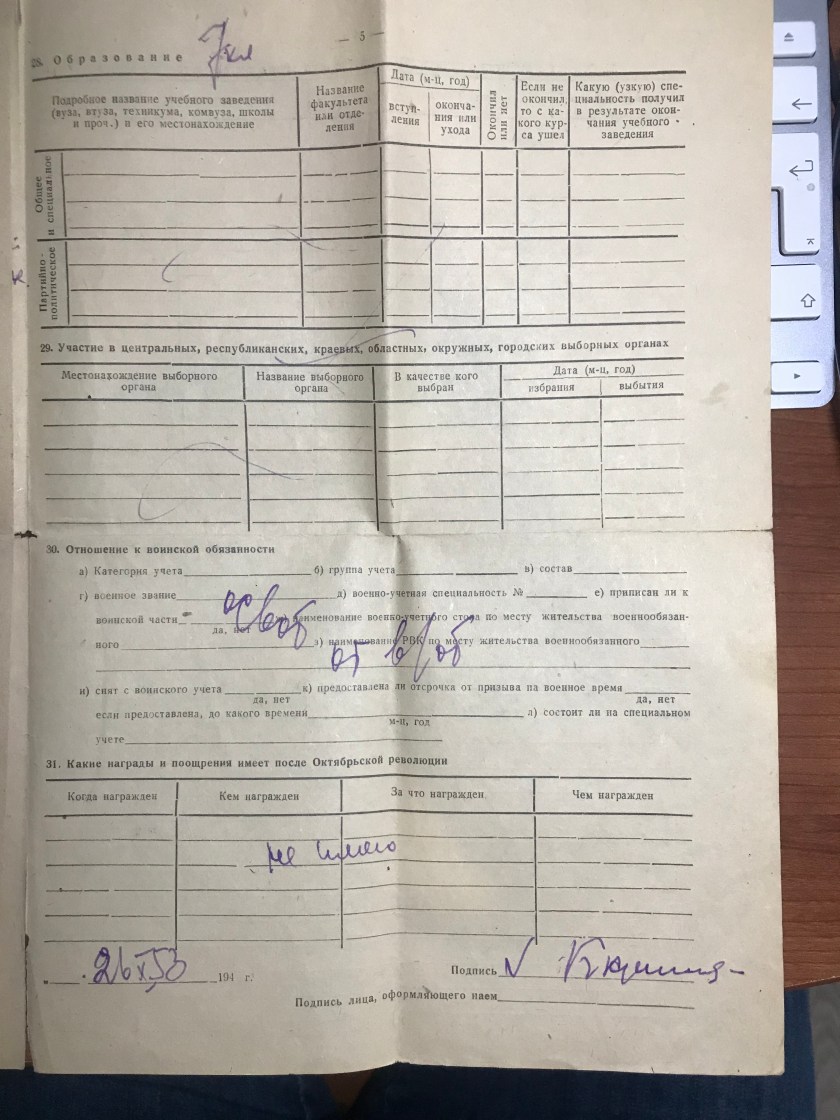 — 5 —
28. Образование 7 кл
Подробное название учебного заведения (вуза, втуза, техникума, комвуза, школы и проч.) и его местонахождение
Название факультета или отделения
Дата (м-ц, год)
вступления
окончания или ухода
Окончил или нет
Если не окончил, то с какого курса ушел
Какую (узкую) специальность получил в результате окончания учебного заведения
Общее и специальное
Партийно-политическое
29. Участие в центральных, республиканских, краевых, областных, окружных, городских выборных органах
Местонахождение выборного органа
Название выборного органа
В качестве кого выбран
Дата (м-ц, год)
избрания
выбытия
30. Отношение к воинской обязанности
а) Категория учета б) группа учета в) состав
г) военное звание д) военно-учетная специальность № е) приписан ли к
воинской части наименование военно-учетного стола по месту жительства военнообязан-
да, нет
ного з) наименование РВК по месту жительства военнообязанного
освоб
от в/об
и) снят с воинского учета к) предоставлена ли отсрочка от призыва па военное время
да, нет да, нет
если предоставлена, до какого времени л) состоит ли на специальном
м-ц, год
учете
31. Какие награды и поощрения имеет после Октябрьской революции
Когда награжден Кем награжден За что награжден Чем награжден
не имею
„ 26 X 53 194 г. Подпись V
Подпись лица, оформляющего наем